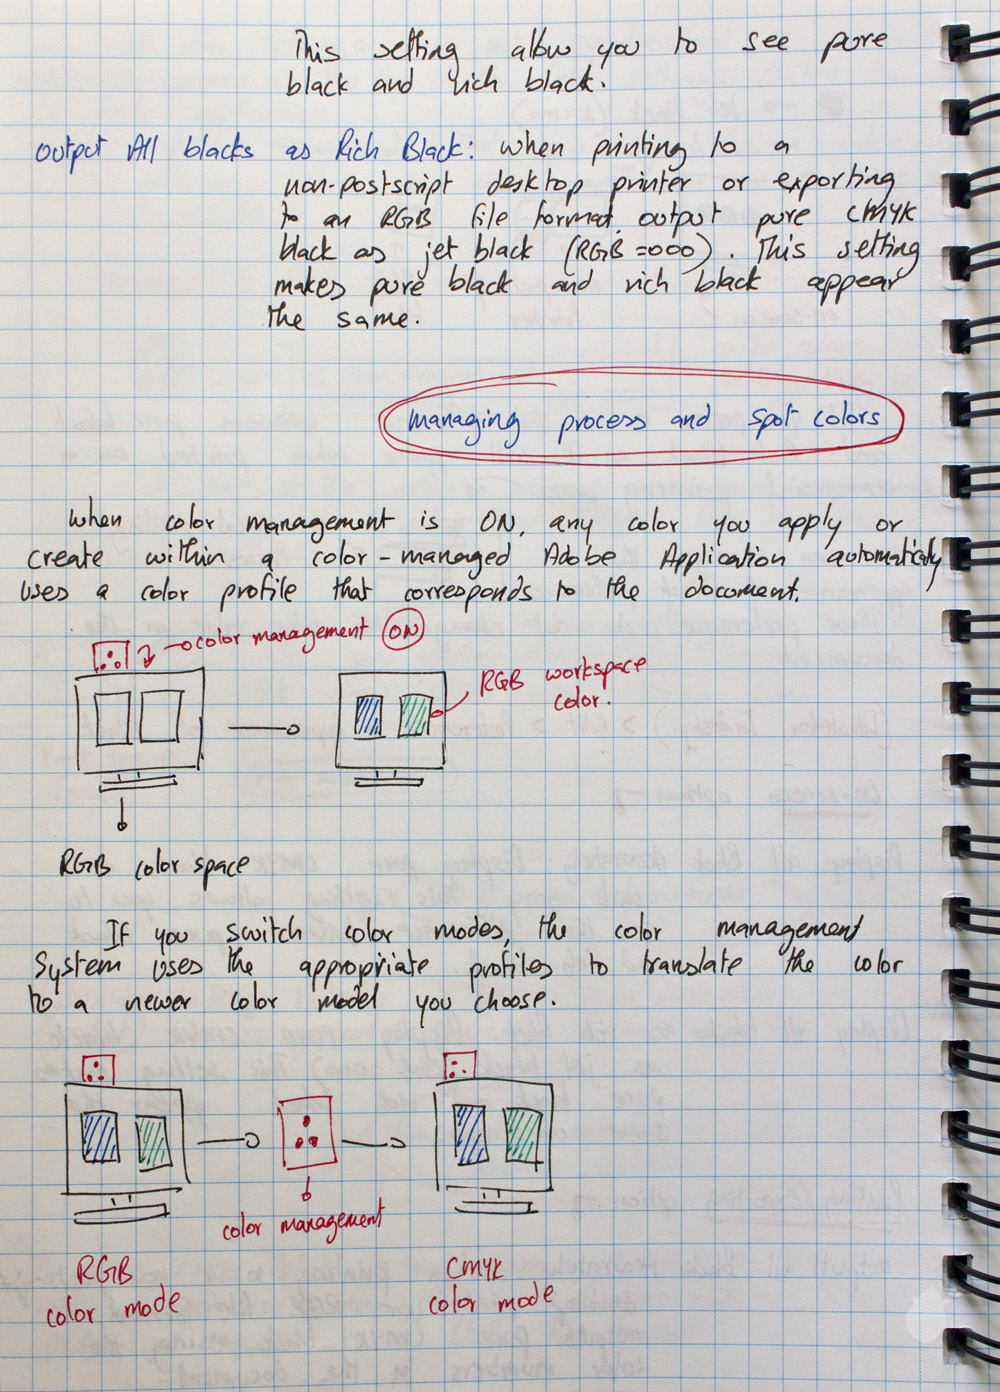 This setting allow you to see pure
black and rich black.
output All blacks as Rich Black: when printing to a
non-postscript desktop printer or exporting
to an RGB file format, output pure CMYK
black as jet black (RGB=000). This setting
makes pure black and rich black appear
the same.
managing process and spot colors
When color management is ON, any color you apply or
create within a color-managed Adobe Application automaticaly
uses a color profile that corresponds to the document.
color management ON
RGB workspace
color.
RGB color space
If you switch color modes, the color management
System uses the appropriate profiles to translate the color
to a newer color model you choose.
color management
RGB
color mode
CMYK
color mode